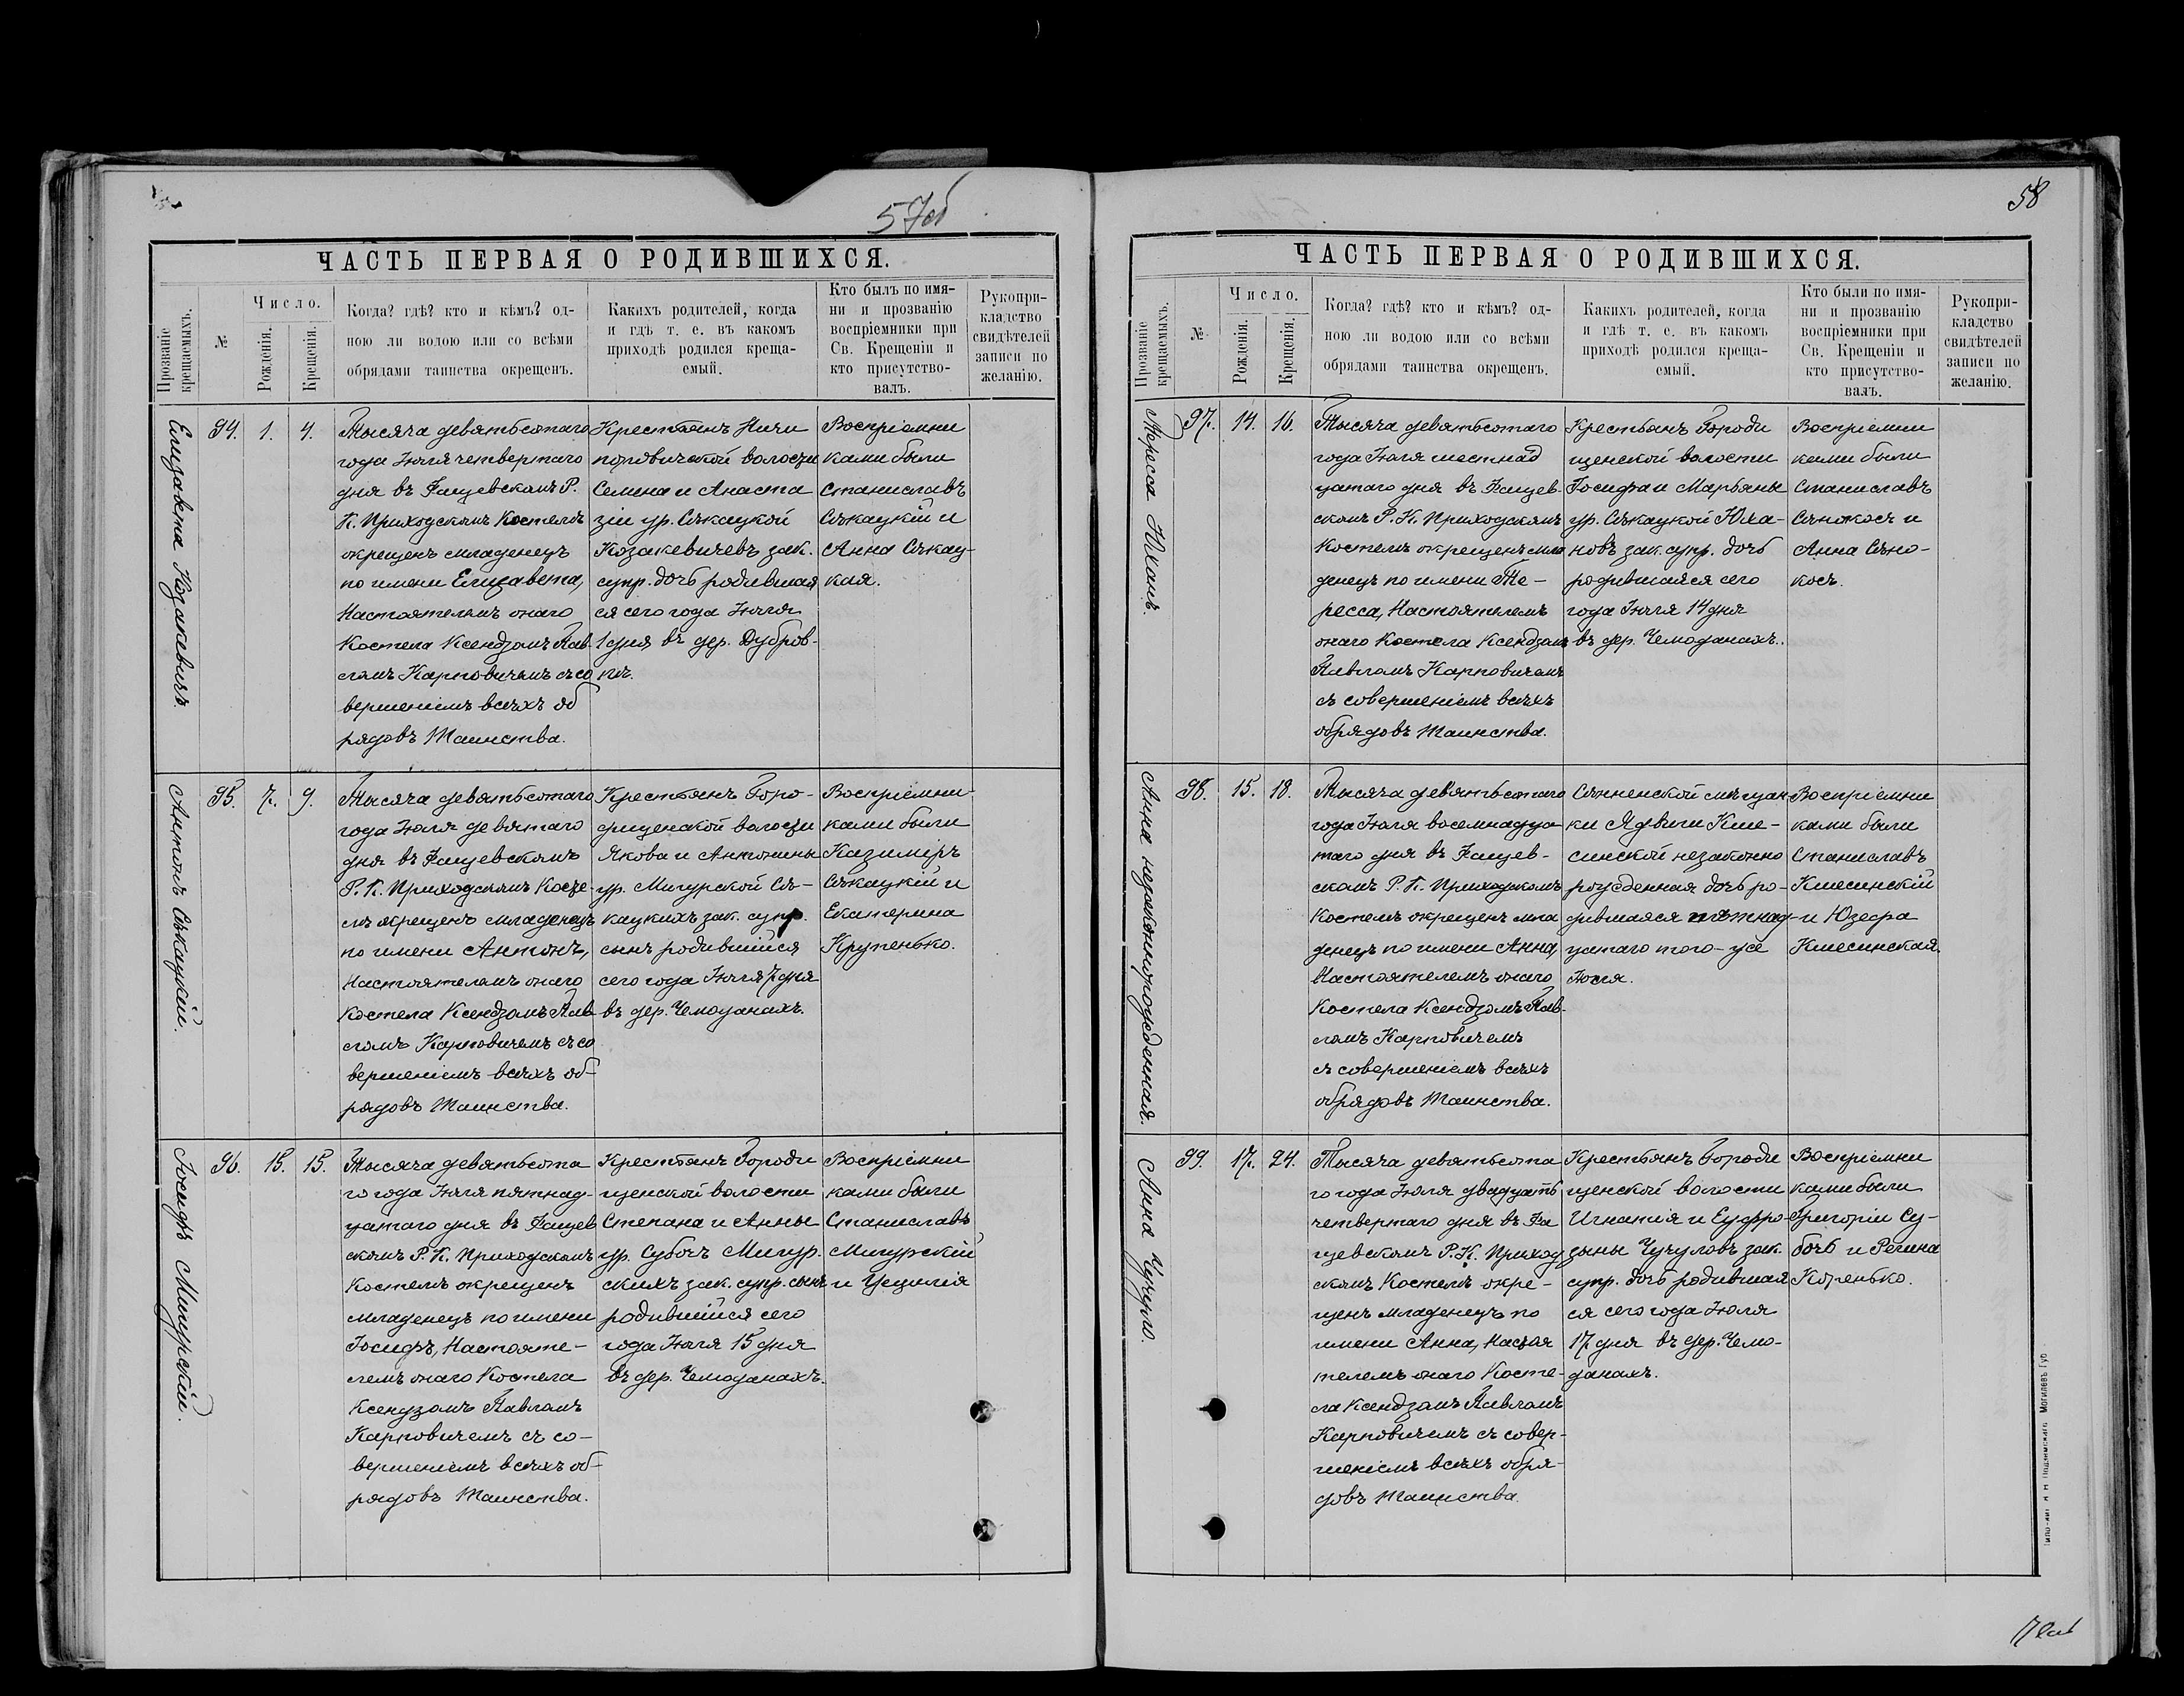 57об
ЧАСТЬ ПЕРВАЯ О РОДИВШИХСЯ.
Прозваніе крещаемыхъ.
№
Число.
Рожденія.
Крещенія.
Когда? гдѣ? кто и кѣмъ? од-
ною ли водою или со всѣми
обрядами таинства окрещенъ.
Какихъ родителей, когда
и гдѣ т. е. въ какомъ
приходѣ родился креща-
емый.
Кто былъ по имя-
ни и прозванію
воспріемники при
Св. Крещеніи и
кто присутство-
валъ.
Рукопри-
кладство
свидѣтелей
записи по
желанію.
Елизавета Козакевичъ.
94.
1.
4.
Тысяча девятьсотаго
года Іюля четвертаго
дня въ Фащевскомъ Р.
К. Приходскомъ Костелѣ
окрещенъ младенецъ
по имени Елизавета,
Настоятелемъ онаго
Костела Ксендзомъ Пав-
ломъ Карповичемъ съ со
вершеніемъ всѣхъ об
рядовъ Таинства.
Крестьянъ Ничи
поровичской волости
Семена и Анаста
зіи ур. Сѣкацкой
Козакевичевъ зак.
супр. дочь родившая
ся сего года Іюля
1 дня въ дер. Дубров-
кѣ.
Воспріемни
ками были
Станиславъ
Сѣкацкій и
Анна Сѣкац-
кая.
Антонъ Сѣкацкій.
95.
7.
9.
Тысяча девятьсотаго
года Іюля девятаго
дня въ Фащевскомъ
Р. К. Приходскомъ Косте-
лѣ окрещенъ младенецъ
по имени Антонъ,
Настоятелемъ онаго
Костела Ксендзомъ Пав
ломъ Карповичемъ съ со
вершеніемъ всѣхъ об-
рядовъ Таинства.
Крестьянъ Горо-
дищенской волости
Якова и Антонины
ур. Мигурской Сѣ-
кацкихъ зак. супр.
сынъ родившійся
сего года Іюля 7 дня
въ дер. Чемоданахъ.
Воспріемни
ками были
Казимиръ
Сѣкацкій и
Екатерина
Крупенько.
Іосифъ Мигурскій.
96.
15.
15.
Тысяча девятьсота
го года Іюля пятнад-
цатаго дня въ Фащев
скомъ Р. К. Приходскомъ
Костелѣ окрещенъ
младенецъ по имени
Іосифъ, Настояте-
лемъ онаго Костела
Ксендзомъ Павломъ
Карповичемъ съ со-
вершеніемъ всѣхъ об-
рядовъ Таинства.
Крестьянъ Городи
щенской волости
Степана и Анны
ур. Субочъ Мигур-
скихъ зак. супр. сынъ
родившійся сего
года Іюля 15 дня
въ дер. Чемоданахъ.
Воспріемни
ками были
Станиславъ
Мигурскій
и Цецилія
58
ЧАСТЬ ПЕРВАЯ О РОДИВШИХСЯ.
Прозваніе крещаемыхъ.
№
Число.
Рожденія.
Крещенія.
Когда? гдѣ? кто и кѣмъ? од-
ною ли водою или со всѣми
обрядами таинства окрещенъ.
Какихъ родителей, когда
и гдѣ т. е. въ какомъ
приходѣ родился креща-
емый.
Кто были по имя-
ни и прозванію
воспріемники при
Св. Крещеніи и
кто присутство-
валъ.
Рукопри-
кладство
свидѣтелей
записи по
желанію.
Тересса Юханъ.
97.
14.
16.
Тысяча девятьсотаго
года Іюля шестнад
цатаго дня въ Фащев-
скомъ Р. К. Приходскомъ
Костелѣ окрещенъ мла
денецъ по имени Те-
ресса, Настоятелемъ
онаго Костела Ксендзомъ
Павломъ Карповичемъ
съ совершеніемъ всѣхъ
обрядовъ Таинства.
Крестьянъ Городи
щенской волости
Іосифа и Марьяны
ур. Сѣкацкой Юха-
новъ зак. супр. дочь
родившаяся сего
года Іюля 14 дня
въ дер. Чемоданахъ.
Воспріемни
ками были
Станиславъ
Сѣнокосъ и
Анна Сѣно-
косъ.
Анна незаконнорожденная.
98.
15.
18.
Тысяча девятьсотаго
года Іюля восемнадца
таго дня въ Фащев-
скомъ Р. К. Приходскомъ
Костелѣ окрещенъ мла
денецъ по имени Анна,
Настоятелемъ онаго
Костела Ксендзомъ Пав-
ломъ Карповичемъ
съ совершеніемъ всѣхъ
обрядовъ Таинства.
Сѣнненской мѣщан-
ки Ядвиги Кме-
синской незаконно
рожденная дочь ро-
дившаяся пятнад-
цатаго того-же
Іюля.
Воспріемни
ками были
Станиславъ
Кмесинскій
и Юзефа
Кмесинская.
Анна Чучуло.
99.
17.
24.
Тысяча девятьсота
го года Іюля двадцать
четвертаго дня въ Фа
щевскомъ Р. К. Приход
скомъ Костелѣ окре-
щенъ младенецъ по
имени Анна, Настоя
телемъ онаго Косте-
ла Ксендзомъ Павломъ
Карповичемъ съ совер-
шеніемъ всѣхъ обря-
довъ Таинства.
Крестьянъ Городи
щенской волости
Игнатія и Еуфро-
зыны Чучуловъ зак.
супр. дочь родившая
ся сего года Іюля
17 дня въ дер. Чемо-
данахъ.
Воспріемни
ками были
Григорій Су-
бочь и Регина
Коренько.
Могилевъ Губ